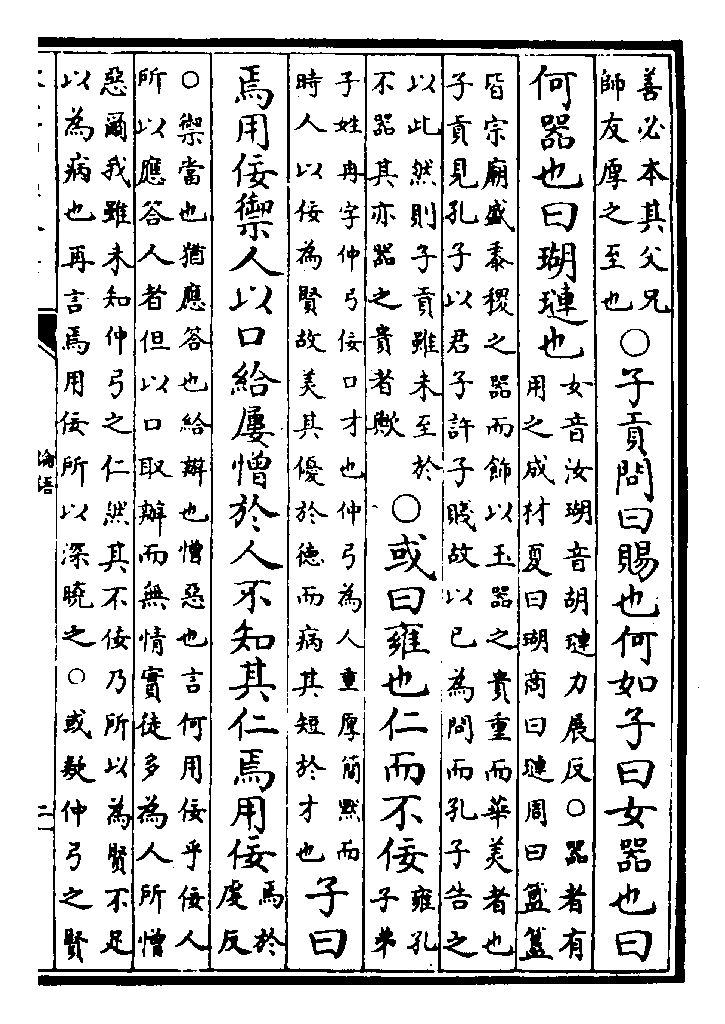 善必本其父兄師友厚之至也○子貢問曰賜也何如子曰女器也曰
何器也曰瑚璉也女音汝瑚音胡璉力展反○器者有用之成材夏曰瑚商曰璉周曰簠簋
皆宗廟盛黍稷之器而飾以玉器之貴重而華美者也
子貢見孔子以君子許子賤故以己為問而孔子告之
以此然則子貢雖未至於不器其亦器之貴者歟○或曰雍也仁而不佞雍孔子弟
子姓冉字仲弓佞口才也仲弓為人重厚簡默而時人以佞為賢故美其優於德而病其短於才也子曰
焉用佞禦人以口給屢憎於人不知其仁焉用佞焉於虔反
○禦當也猶應答也給辦也憎惡也言何用佞乎佞人
所以應答人者但以口取辦而無情實徒多為人所憎
惡爾我雖未知仲弓之仁然其不佞乃所以為賢不足
以為病也再言焉用佞所以深曉之○或疑仲弓之賢
論語